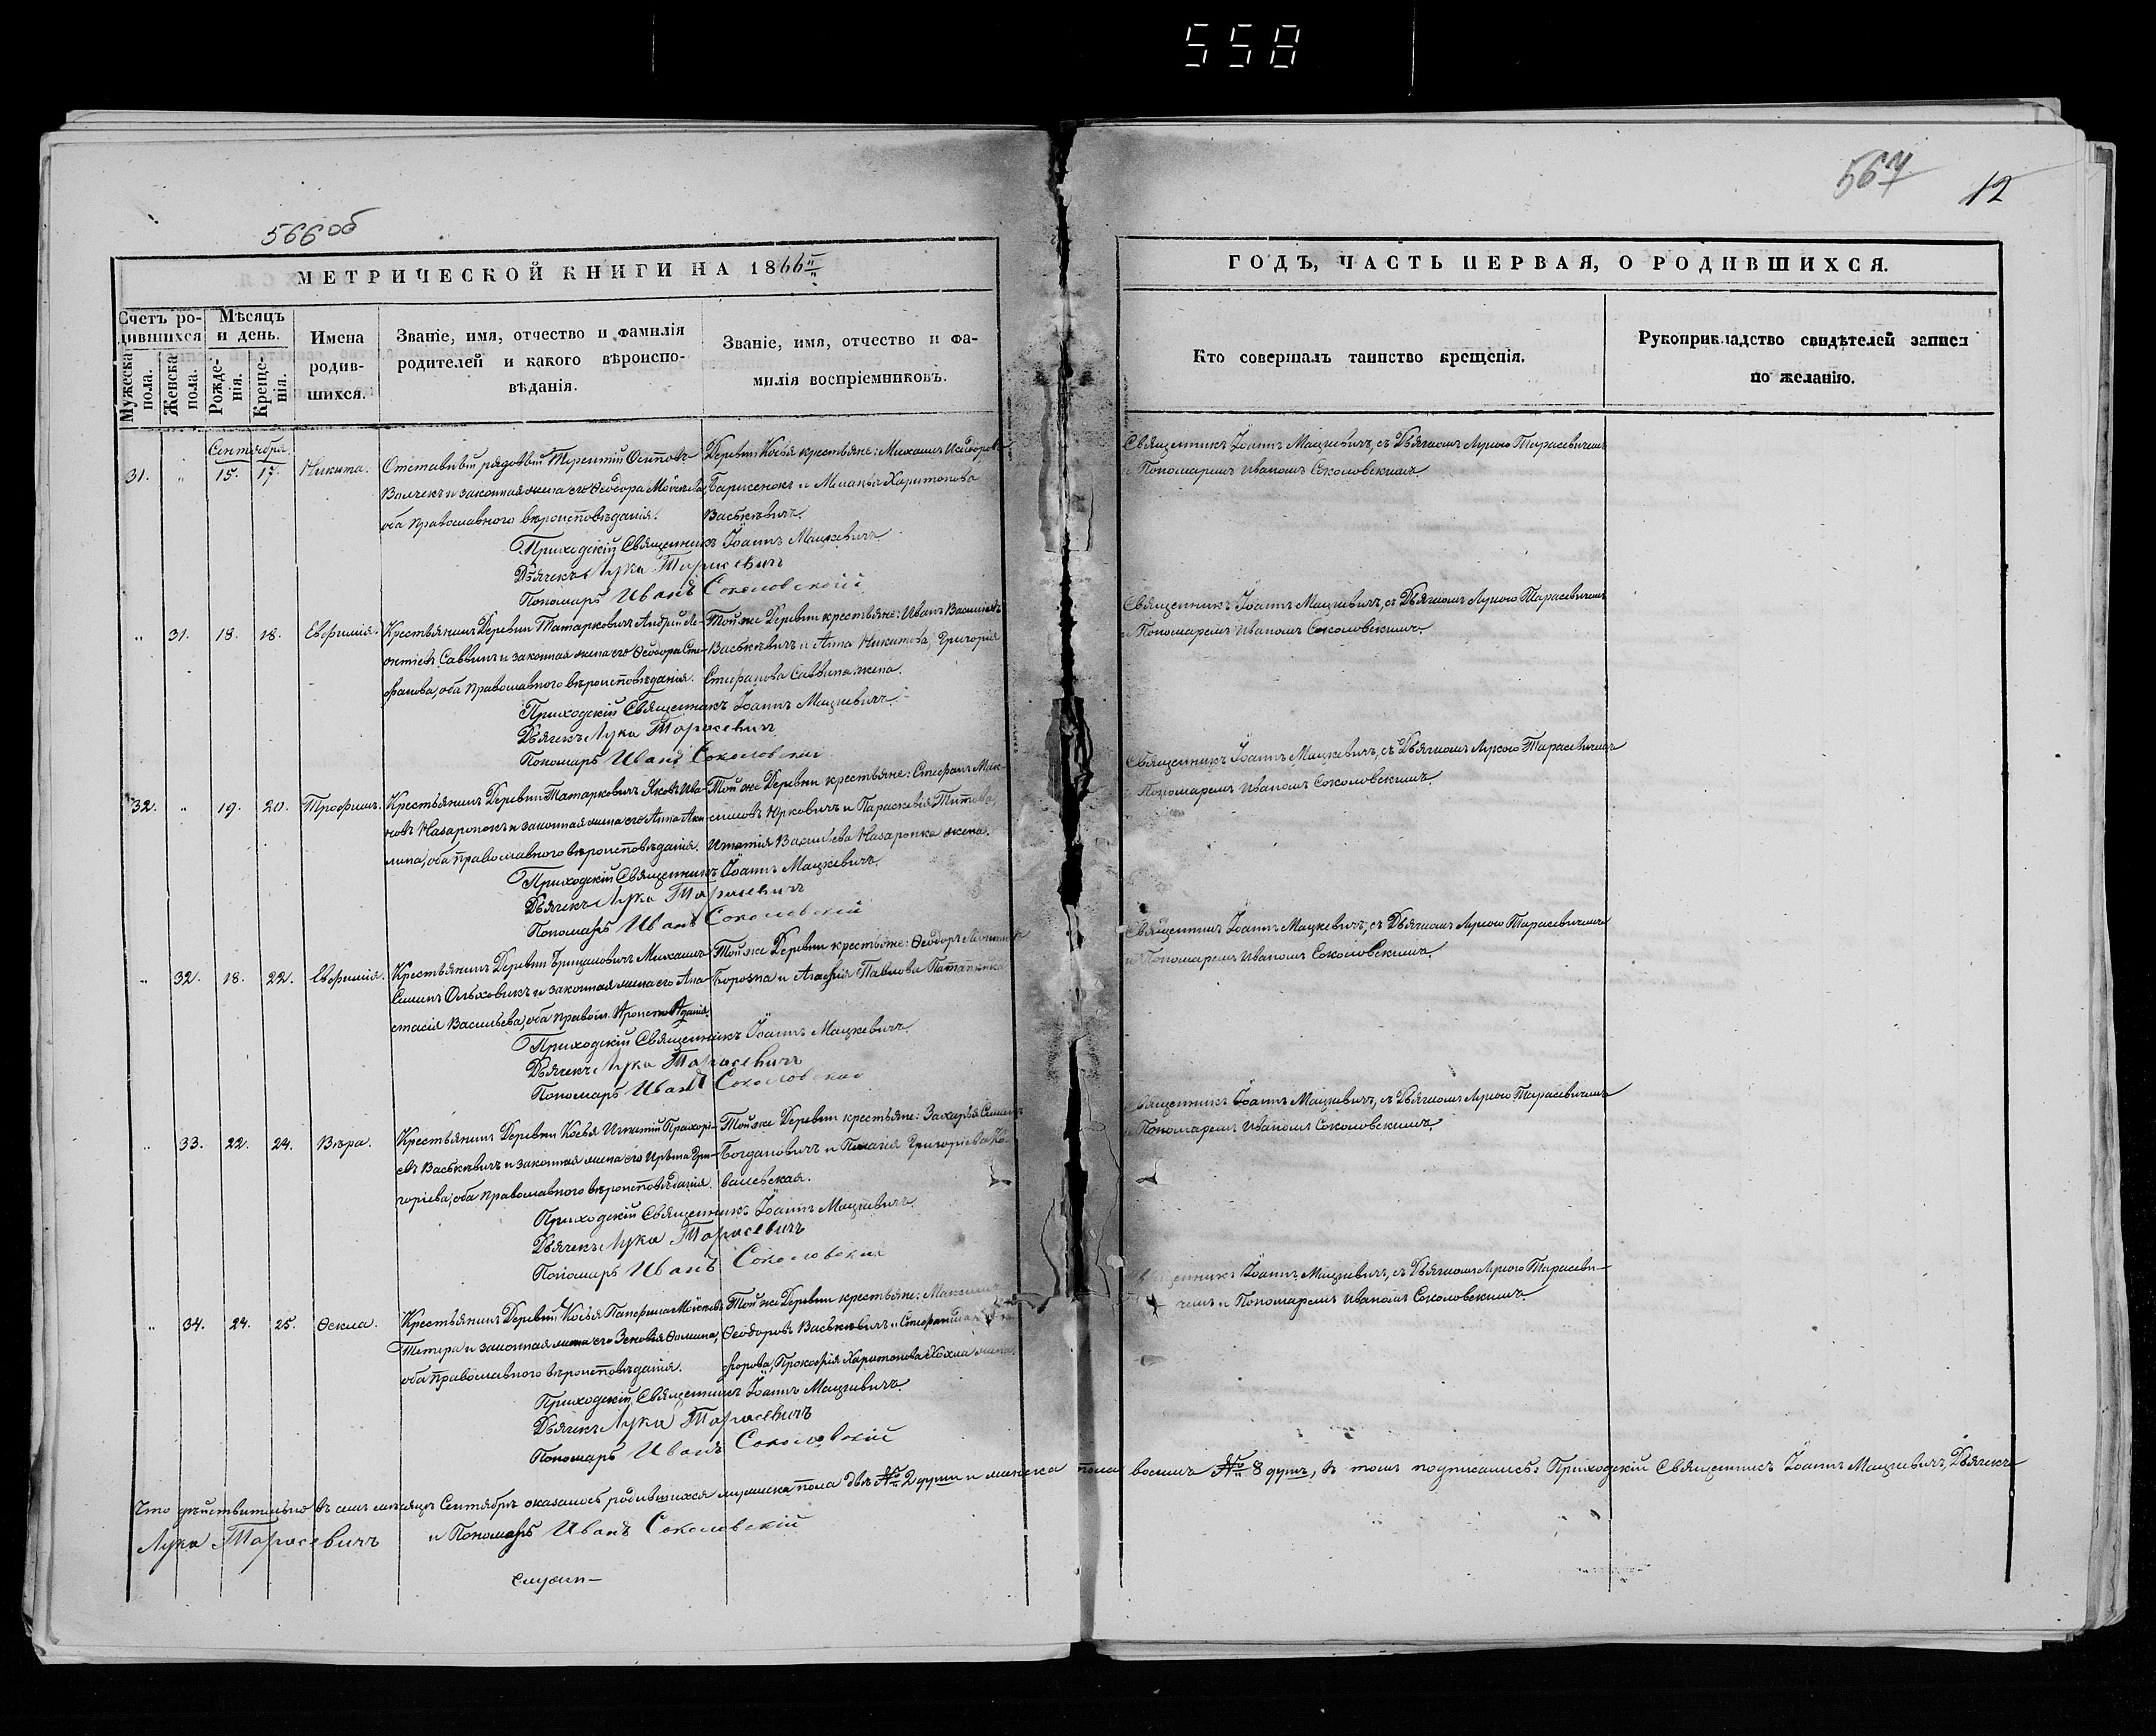 558
567
12
566об
МЕТРИЧЕСКОЙ КНИГИ НА 1866
ГОДЪ, ЧАСТЬ ПЕРВАЯ, О РОДИВШИХСЯ.
Счетъ ро-
дившихся
Мужеска
пола.
Женска
пола.
Мѣсяцъ
и день.
Рожде-
нія.
Креще-
нія.
Имена
родив-
шихся.
Званіе, имя, отчество и фамилія
родителей и какого вѣроиспо-
вѣданія.
Званіе, имя, отчество и фа-
милія воспріемниковъ.
Кто совершалъ таинство крещенія.
Рукоприкладство свидѣтелей записи
по желанію.
Сентября
31. " 15. 17. Никита.
Отставный рядовый Терентій Осиповъ
Волчекъ и законная жена его Ѳеодора
оба православнаго вѣроисповѣданія.
Деревни Косья крестьяне: Михаилъ
и Меланія Харитонова
Васькевичъ.
Священникъ Іоаннъ Мацкевичъ, съ Дьячкомъ Лукою Тарасевичемъ
и Пономаремъ Иваномъ Соколовскимъ.
Приходскій Священникъ Іоаннъ Мацкевичъ.
Дьячекъ Лука Тарасевичъ
Пономарь Иванъ Соколовскій
" 31. 18. 18. Евфимія.
Крестьянинъ Деревни Татарковичъ Андрей Ле-
онтіевъ Саввинъ и законная жена его Ѳеодора Сте-
фанова, оба православнаго вѣроисповѣданія.
Той же Деревни крестьяне: Иванъ Васильевъ
Васькевичъ и Анна Никитова, Григорія
Стефанова Саввина жена.
Священникъ Іоаннъ Мацкевичъ, съ Дьячкомъ Лукою Тарасевичемъ
и Пономаремъ Иваномъ Соколовскимъ.
Приходскій Священникъ Іоаннъ Мацкевичъ.
Дьячекъ Лука Тарасевичъ
Пономарь Иванъ Соколовскій
32. " 19. 20. Трофимъ.
Крестьянинъ Деревни Татарковичъ Яковъ Ива-
новъ Назаронокъ и законная жена его Анна Аки-
мина, оба православнаго вѣроисповѣданія.
Той же Деревни крестьяне: Стефанъ Мак-
симовъ Юрковичъ и Параскевія Титова,
Игнатія Васильева Назаронка жена.
Священникъ Іоаннъ Мацкевичъ, съ Дьячкомъ Лукою Тарасевичемъ
и Пономаремъ Иваномъ Соколовскимъ.
Приходскій Священникъ Іоаннъ Мацкевичъ.
Дьячекъ Лука Тарасевичъ
Пономарь Иванъ Соколовскій
" 32. 18. 22. Евфимія.
Крестьянинъ Деревни Брицаловичъ Михаилъ
Симинъ Ольховикъ и законная жена его Ана-
стасія Васильева, оба правосл. вѣроисповѣданія.
Той же Деревни крестьяне: Ѳеодоръ
Борозна и Агафія Павлова
Священникъ Іоаннъ Мацкевичъ, съ Дьячкомъ Лукою Тарасевичемъ
и Пономаремъ Иваномъ Соколовскимъ.
Приходскій Священникъ Іоаннъ Мацкевичъ.
Дьячекъ Лука Тарасевичъ
Пономарь Иванъ Соколовскій
" 33. 22. 24. Вѣра.
Крестьянинъ Деревни Косья Игнатій Прохорі-
евъ Васькевичъ и законная жена его Ирѣна Гри-
горіева, оба православнаго вѣроисповѣданія.
Той же Деревни крестьяне: Захарія
Богдановичъ и Пелагія Григоріева Ко-
валевская.
Священникъ Іоаннъ Мацкевичъ, съ Дьячкомъ Лукою Тарасевичемъ
и Пономаремъ Иваномъ Соколовскимъ.
Приходскій Священникъ Іоаннъ Мацкевичъ.
Дьячекъ Лука Тарасевичъ
Пономарь Иванъ Соколовскій
" 34. 24. 25. Ѳекла.
Крестьянинъ Деревни Косья
Тетера и законная жена его Зеновія Ѳомина,
оба православнаго вѣроисповѣданія.
Той же Деревни крестьяне: Максимъ
Ѳеодоровъ Васькевичъ и
Прокофія Харитонова жена.
Священникъ Іоаннъ Мацкевичъ, съ Дьячкомъ Лукою Тарасеви-
чемъ и Пономаремъ Иваномъ Соколовскимъ.
Приходскій Священникъ Іоаннъ Мацкевичъ.
Дьячекъ Лука Тарасевичъ
Пономарь Иванъ Соколовскій
Что дѣйствительно въ семъ мѣсяцѣ Сентябрѣ оказалось родившихся мужеска пола двѣ № 2 души и женска пола восемь № 8 душъ, въ томъ подписались: Приходскій Священникъ Іоаннъ Мацкевичъ, Дьячекъ
Лука Тарасевичъ и Пономарь Иванъ Соколовскій